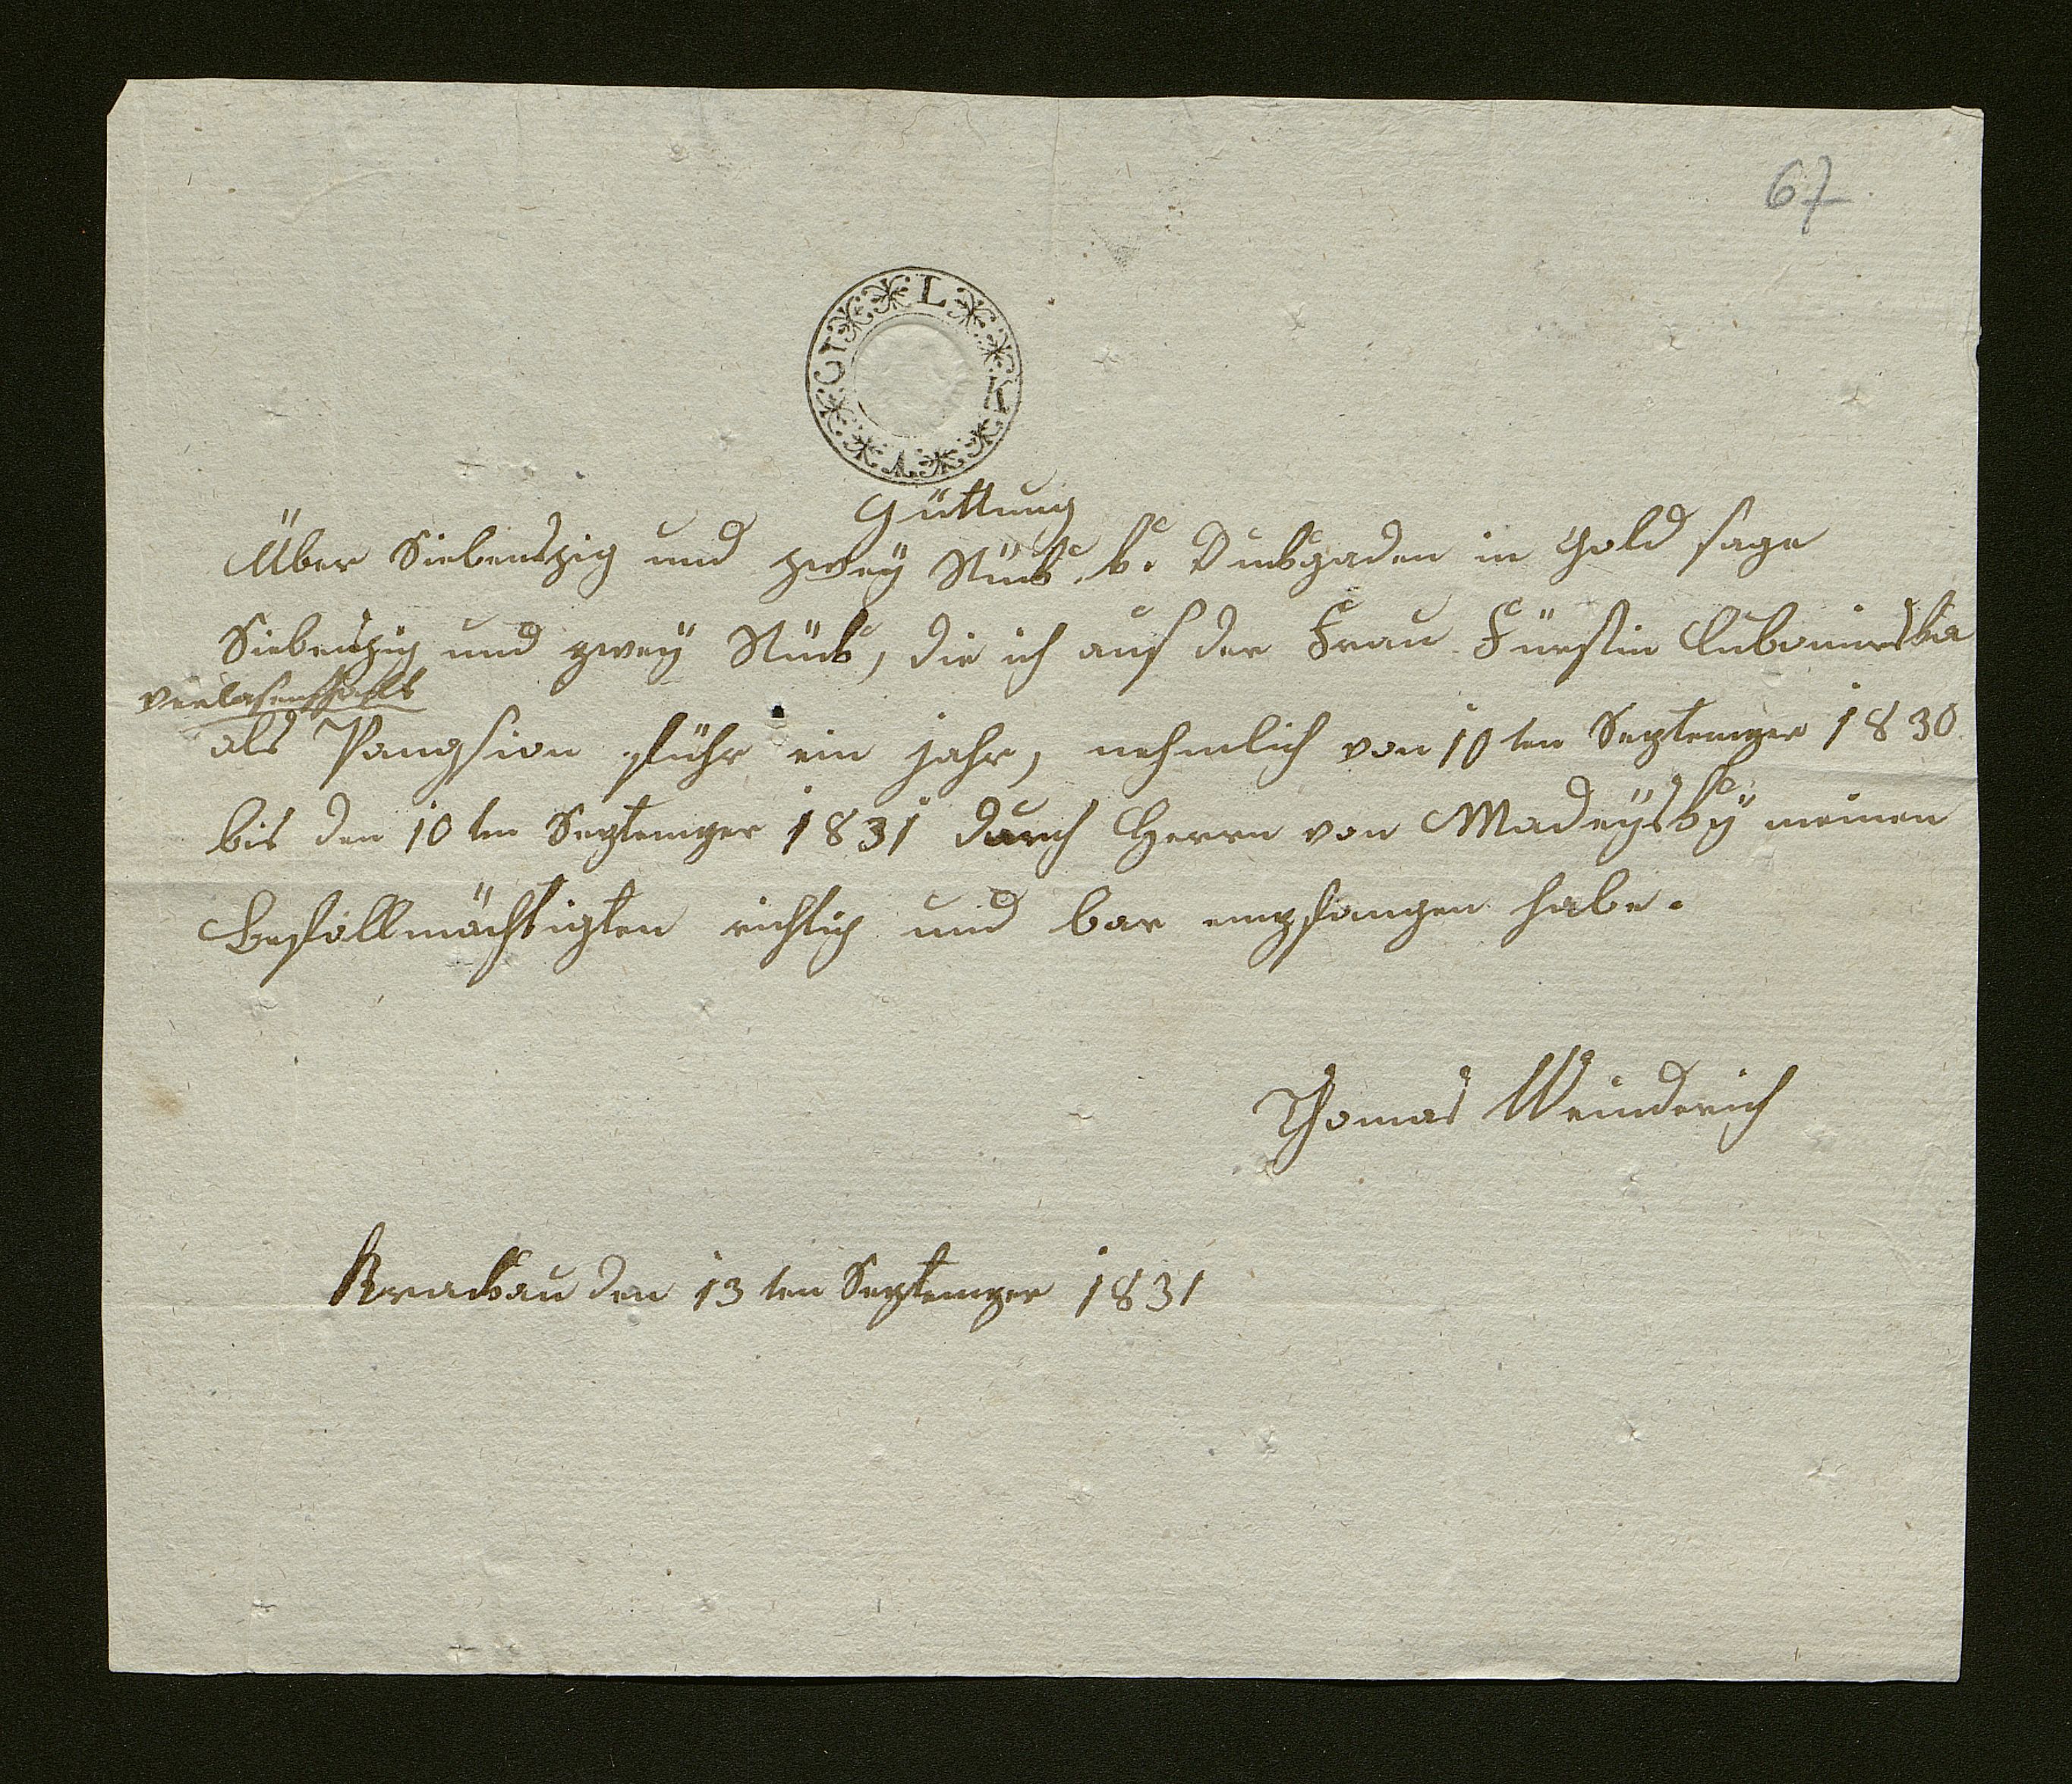 67
Güttung
Über Siebendzig und zwey Stück k. Duckgaden in Gold sage
Siebendzig und zwey Stück, die ich auf der Frau Fürstin Lubomirska
verlasenschaft
als Pangsion führ ein jahr, nehmlich von 10 ten Septemper 1830
bis den 10 ten Septemper 1831 durch Herrn von Madeÿskÿ meinen
Befollmächtigten richtig und bar empfangen habe.
Thomas Weinderich
Krackau den 13 ten Septemper 1831